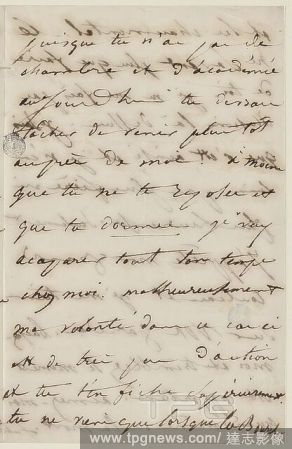 puisque tu n'as pas de
chambre et d'académie
aujourd'hui tu devrais
tâcher de venir plus tôt
auprès de moi. à moins
que tu ne te reposes et
que tu dormes je vais
acaparer tout ton temps
chez moi. malheureusement
ma volonté dans ce cas ci
et de très peu d'action
et tu t'en fiche
tu ne viens que lorsque
www.tpgnews.com / 達志影像